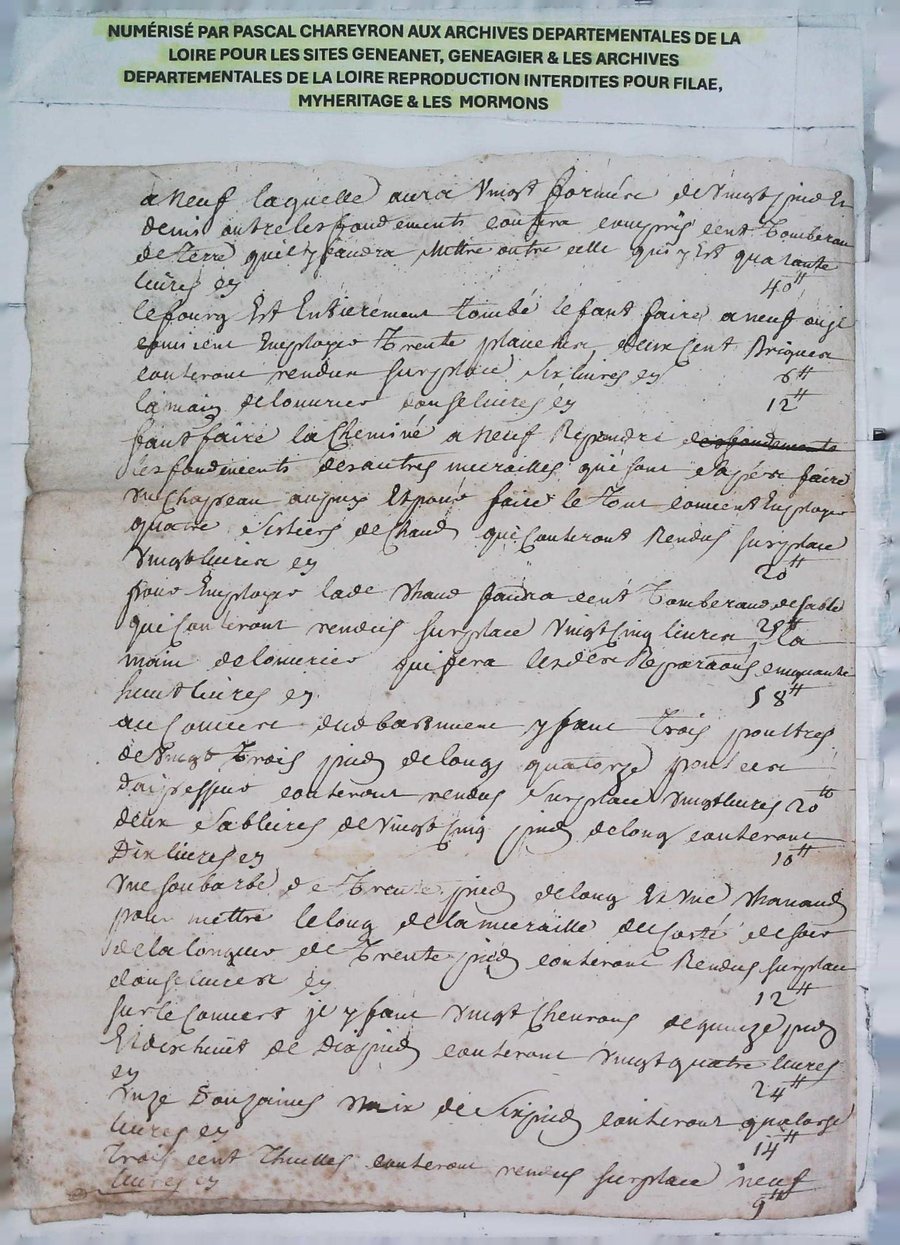 NUMÉRISÉ PAR PASCAL CHAREYRON AUX ARCHIVES DEPARTEMENTALES DE LA
LOIRE POUR LES SITES GENEANET, GENEAGIER & LES ARCHIVES
DEPARTEMENTALES DE LA LOIRE REPRODUCTION INTERDITES POUR FILAE,
MYHERITAGE & LES MORMONS
a neuf laquelle aura vingt de vingt pied Et
demis outre les fondements compris cent Tomberau
de Terre quil y faudra mettre outre celle qui y Est quarante
livres ey 40tt
le fourg Est Entierement tombé le faut faire a neuf
convient Employer Trente deux cent Briques
couteront rendus sur place six livres ey 6tt
la main de louvrier douse livres ey 12tt
faut faire la Cheminé a neuf Rependre
les fondements des autres murailles qui sont faire
un Chapeau au puis Et pour faire le Tout convient Employer
quatre de Chaud qui Couteront Rendus sur place
vingt livres ey 20tt
pour Employer lade Chaud faudra cent Tomberaud de sable
qui Couteront rendus sur place vingt Cinq livres 25tt la
main de louvrier qui fera Reparaons cinquante
huit livres ey 58tt
au Couvert dud bastiment y faut Trois poultres
de vingt Trois pied de long quatorze pouces
despesseur couteront rendus sur place vingt livres 20tt
deux sablieres de vingt cinq pied de long couteront
Dix livres ey 10tt
Une soubarbe de Trente pied de long Et une
pour mettre le long de la muraille du Costé de soir
de la longueur de Trente pied couteront Rendus sur place
douse livres ey 12tt
sur le Couvert y faut vingt Chevrons de quinze pied
Et dix huit de Dix pied couteront vingt quatre livres
ey 24tt
Unze Douzaines de Six pied couteront quatorse
livres ey 14tt
Trois cent Thuilles couteront rendus sur place neuf
livres ey 9tt